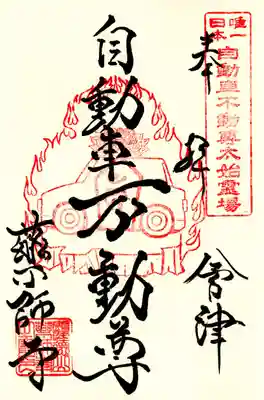 唯一
日本
自動車不動尊太始霊場
奉拝
會津
自動車不動尊
薩尓師寺